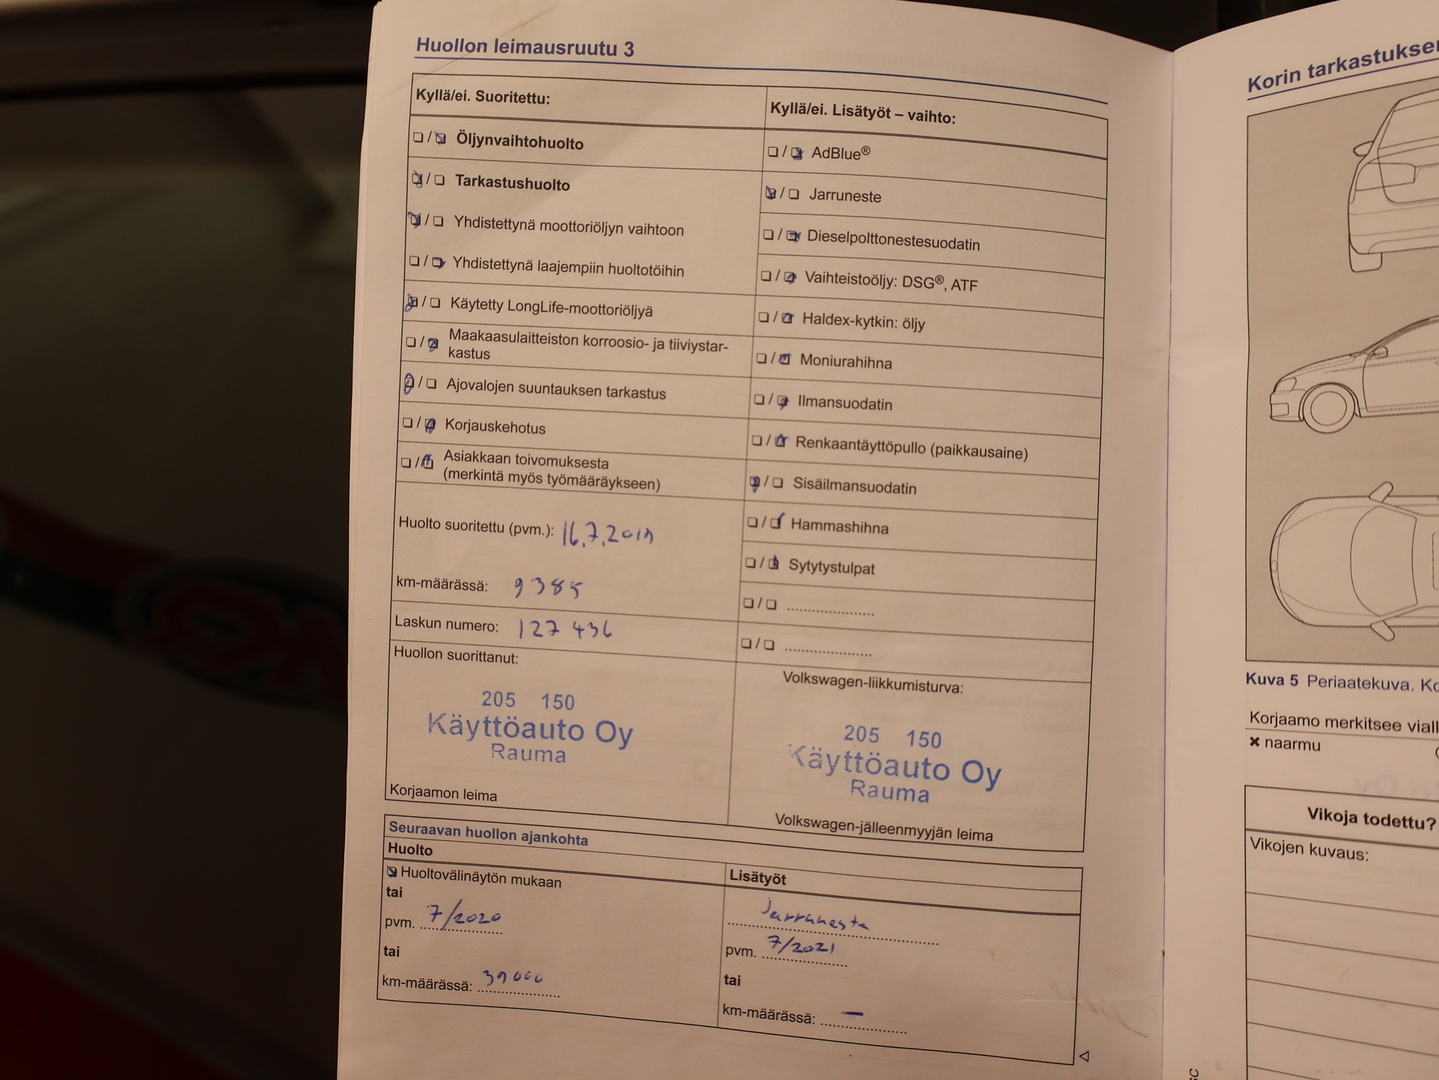 Huollon leimausruutu 3
Kyllä/ei. Suoritettu:
Öljynvaihtohuolto
Tarkastushuolto
Yhdistettynä moottoriöljyn vaihtoon
Yhdistettynä laajempiin huoltotöihin
Käytetty LongLife-moottoriöljyä
Maakaasulaitteiston korroosio- ja tiiviystar-
kastus
Ajovalojen suuntauksen tarkastus
Korjauskehotus
Asiakkaan toivomuksesta
(merkintä myös työmääräykseen)
Huolto suoritettu (pvm.): 16.7.2019
km-määrässä: 9385
Laskun numero: 127 436
Huollon suorittanut:
205 150
Käyttöauto Oy
Rauma
Korjaamon leima
Kyllä/ei. Lisätyöt – vaihto:
AdBlue®
Jarruneste
Dieselpolttonestesuodatin
Vaihteistoöljy: DSG®, ATF
Haldex-kytkin: öljy
Moniurahihna
Ilmansuodatin
Renkaantäyttöpullo (paikkausaine)
Sisäilmansuodatin
Hammashihna
Sytytystulpat
Volkswagen-liikkumisturva:
205 150
Käyttöauto Oy
Rauma
Volkswagen-jälleenmyyjän leima
Seuraavan huollon ajankohta
Huolto
Huoltovälinäytön mukaan
tai
pvm. 7/2020
tai
km-määrässä: 39000
Lisätyöt
Jarruneste
pvm. 7/2021
tai
km-määrässä: –
Korin tarkastuksen
Kuva 5 Periaatekuva.
Korjaamo merkitsee
✖ naarmu
Vikoja todettu?
Vikojen kuvaus: